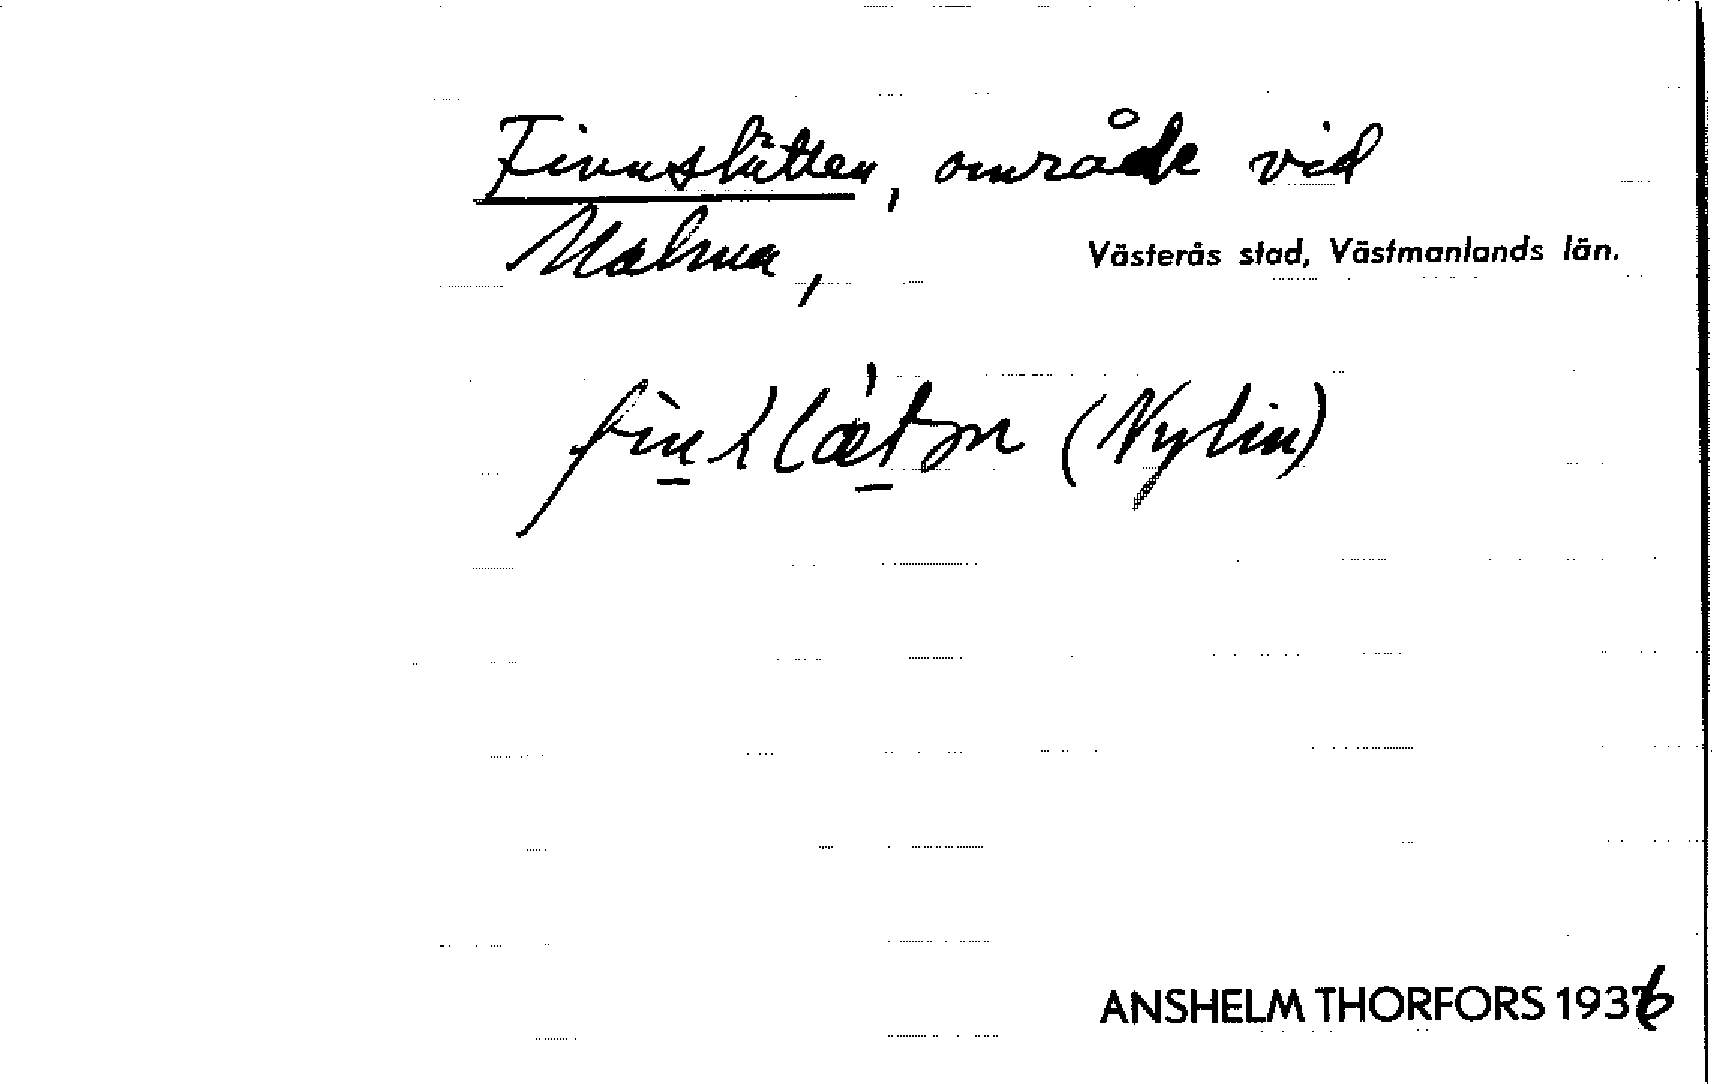 Finnslätten, område vid
Malma,
Västerås stad, Västmanlands län.
(Nylin)
ANSHELM THORFORS 1936